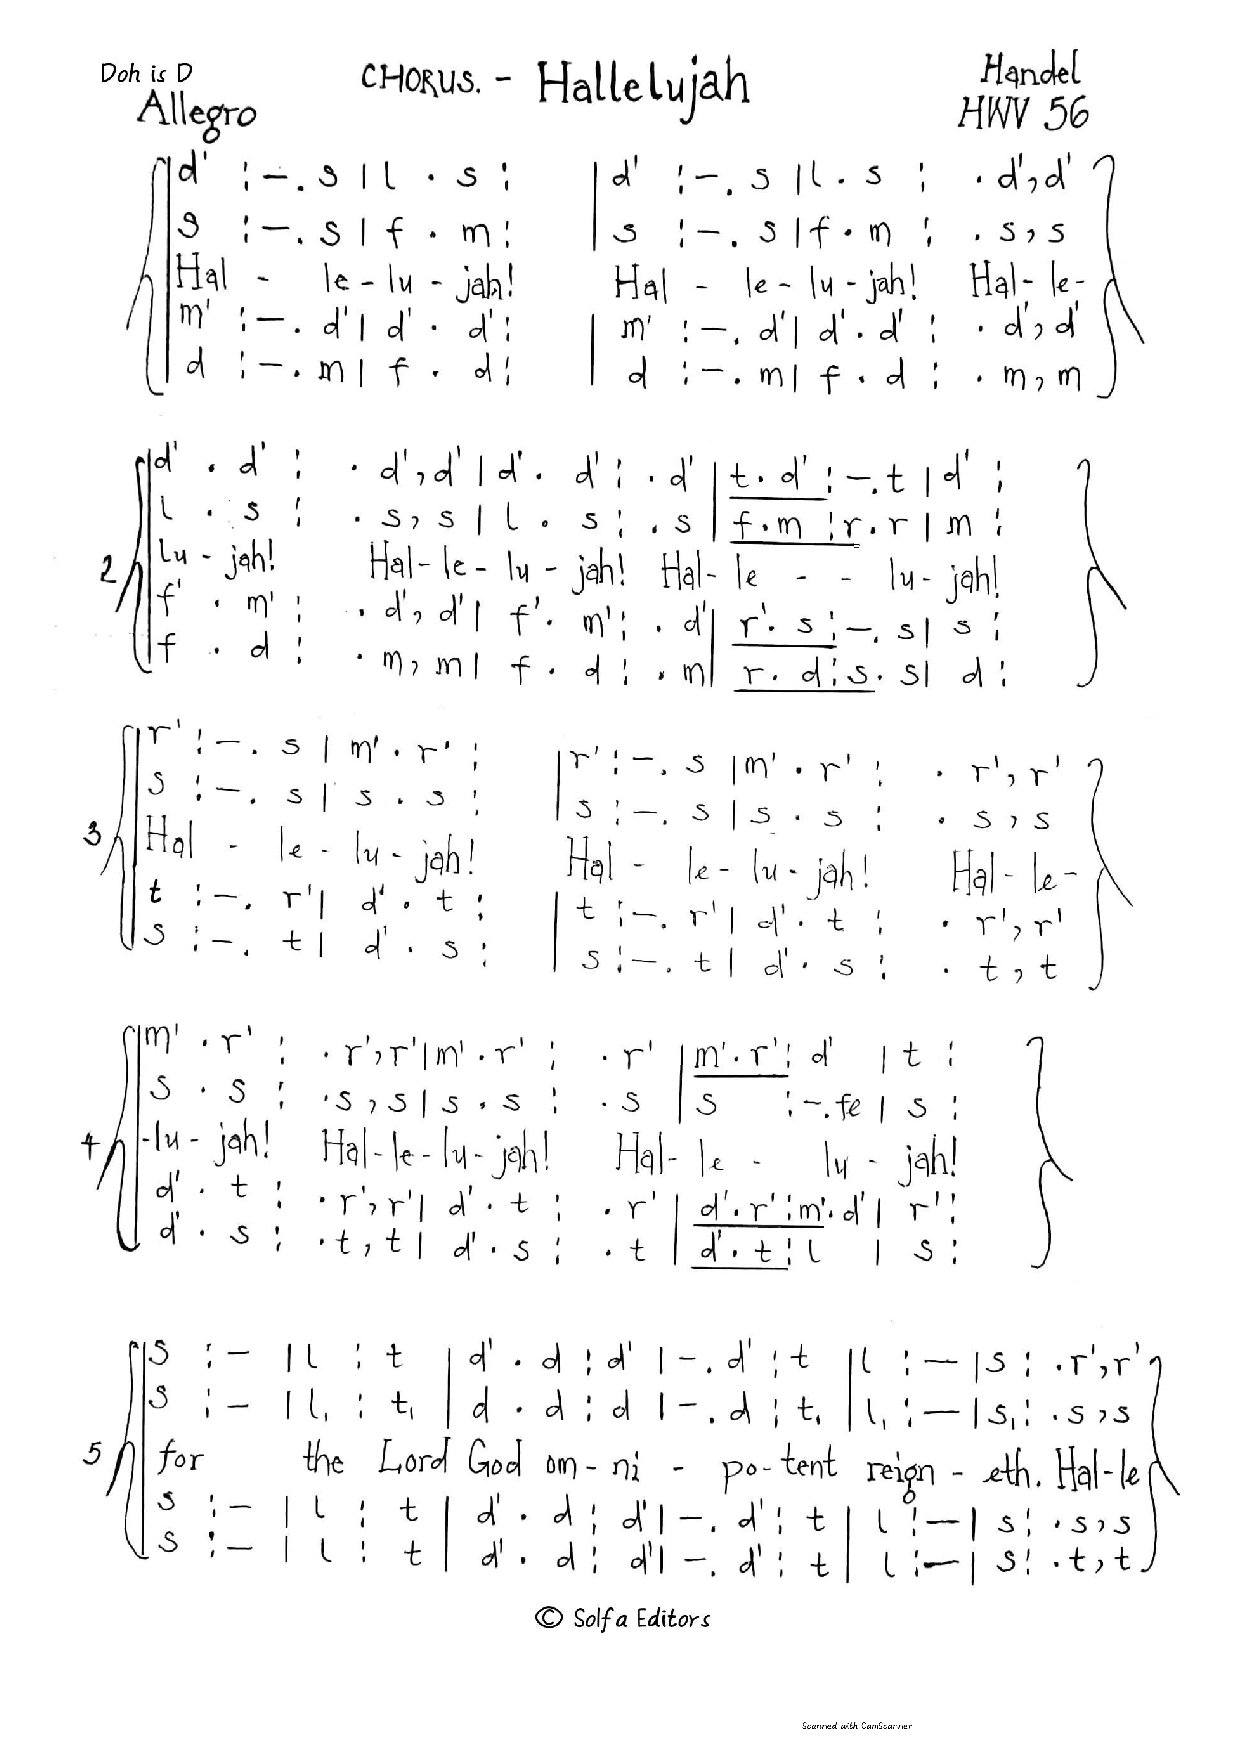 Doh is D
CHORUS. - Hallelujah
Handel
Allegro
HWV 56
d' :–. s | l . s : | d' :–. s | l . s : . d', d'
s :–. s | f . m : | s :–. s | f . m : . s, s
Hal - le - lu - jah! Hal - le - lu - jah! Hal - le -
m' :–. d' | d' . d' : | m' :–. d' | d' . d' : . d', d'
d :–. m | f . d : | d :–. m | f . d : . m, m
d' . d' : . d', d' | d' . d' : . d' | t . d' :–. t | d' :
l . s : . s, s | l . s : . s | f . m : r . r | m :
2 lu - jah! Hal - le - lu - jah! Hal - le - - lu - jah!
f' . m' : . d', d' | f' . m' : . d' | r' . s :–. s | s :
f . d : . m, m | f . d : . m | r . d : s . s | d :
r' :–. s | m' . r' : | r' :–. s | m' . r' : . r', r'
s :–. s | s . s : | s :–. s | s . s : . s, s
3 Hal - le - lu - jah! Hal - le - lu - jah! Hal - le -
t :–. r' | d' . t : | t :–. r' | d' . t : . r', r'
s :–. t | d' . s : | s :–. t | d' . s : . t, t
m' . r' : . r', r' | m' . r' : . r' | m' . r' : d' | t :
s . s : . s, s | s . s : . s | s :–. fe | s :
4 -lu - jah! Hal - le - lu - jah! Hal - le - lu - jah!
d' . t : . r', r' | d' . t : . r' | d' . r' : m' . d' | r' :
d' . s : . t, t | d' . s : . t | d' . t : l | s :
s :– | l : t | d' . d : d' |–. d' : t | l :– | s : . r', r'
s :– | l, : t, | d . d : d |–. d : t, | l, :– | s, : . s, s
5 for the Lord God om - ni - po - tent reign - eth. Hal - le
s :– | l : t | d' . d : d' |–. d' : t | l :– | s : . s, s
s :– | l : t | d' . d : d' |–. d' : t | l :– | s : . t, t
© Solfa Editors
Scanned with CamScanner